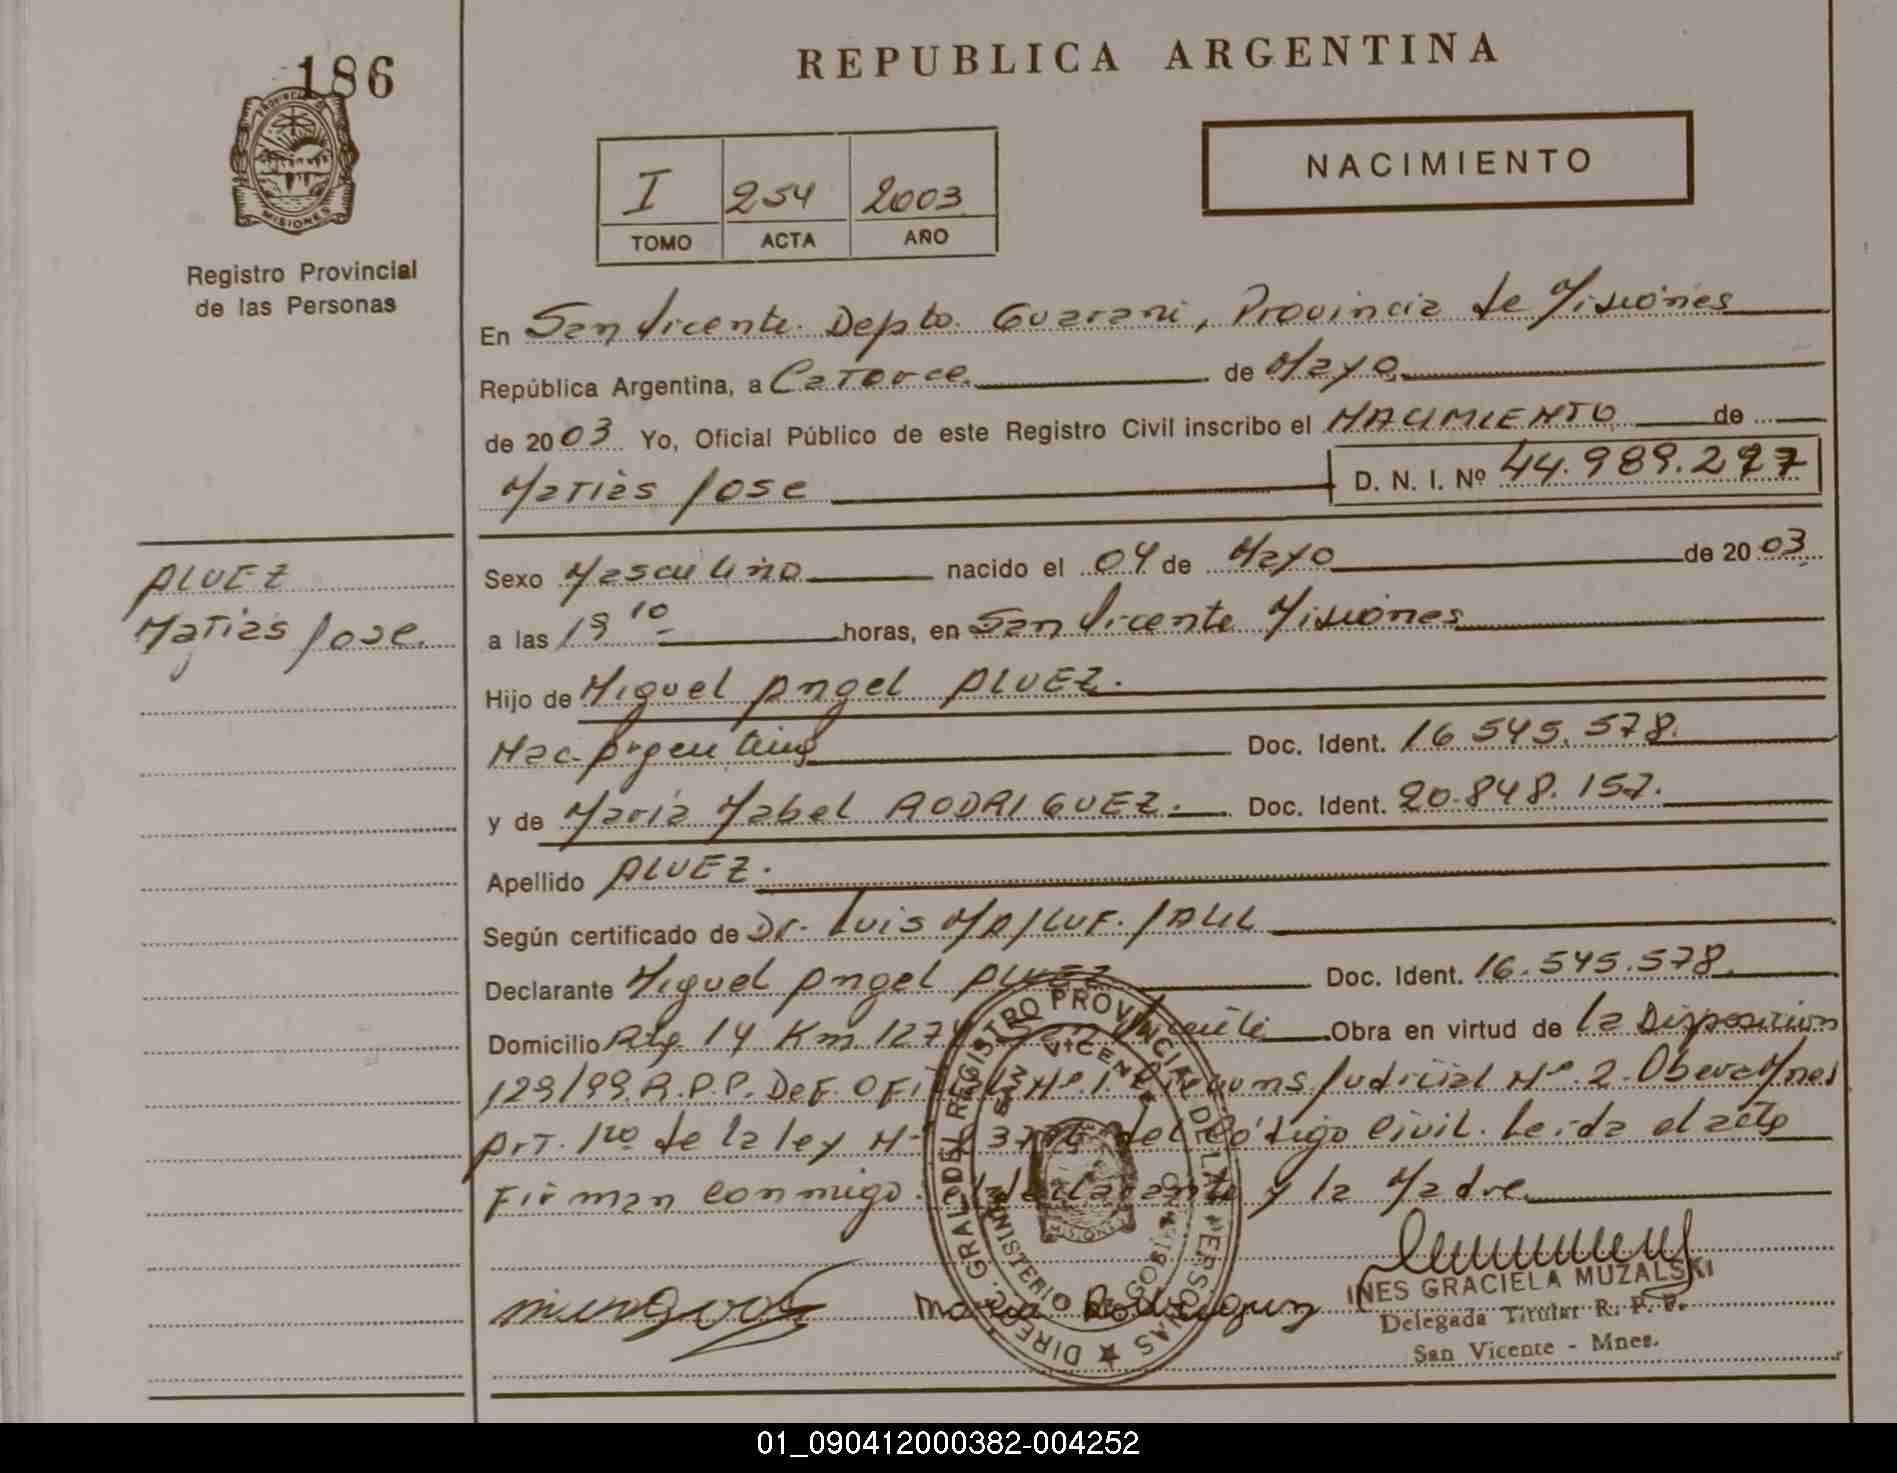 186
PROVINCIA DE
MISIONES
Registro Provincial
de las Personas
REPUBLICA ARGENTINA
NACIMIENTO
I 254 2003
TOMO ACTA AÑO
En San Vicente. Depto. Guarani, Provincia de Misiones
República Argentina, a Catorce de Mayo
de 2003 Yo, Oficial Público de este Registro Civil inscribo el NACIMIENTO de
Matias Jose D. N. I. Nº 44.989.297
ALVEZ
Matias Jose.
Sexo Masculino nacido el 04 de Mayo de 2003
a las 19 10 horas, en San Vicente Misiones
Hijo de Miguel Angel ALVEZ.
Nac. Argentina Doc. Ident. 16.545.578.
y de Maria Mabel RODRIGUEZ. Doc. Ident. 20.848.157.
Apellido ALVEZ.
Según certificado de Dr. Luis MAJLUF.
Declarante Miguel Angel ALVEZ Doc. Ident. 16.545.578.
Domicilio Rta. 14 Km. 1274 San Vicente Obra en virtud de la Disposicion
129/99. R.P.P. DEF. OFICIAL Nº 1. Judicial Nº 2. Obera Mnes
Art. 1ro de la ley Nº del Código Civil. Leida el acta
Firman conmigo. el declarante y la Madre
DIREC. GRAL. DEL REGISTRO PROVINCIAL DE LAS PERSONAS
SAN VICENTE
MINISTERIO DE GOBIERNO
MISIONES
Maria Rodriguez
INES GRACIELA MUZALSKI
Delegada Titular R. P. P.
San Vicente - Mnes.
01_090412000382-004252